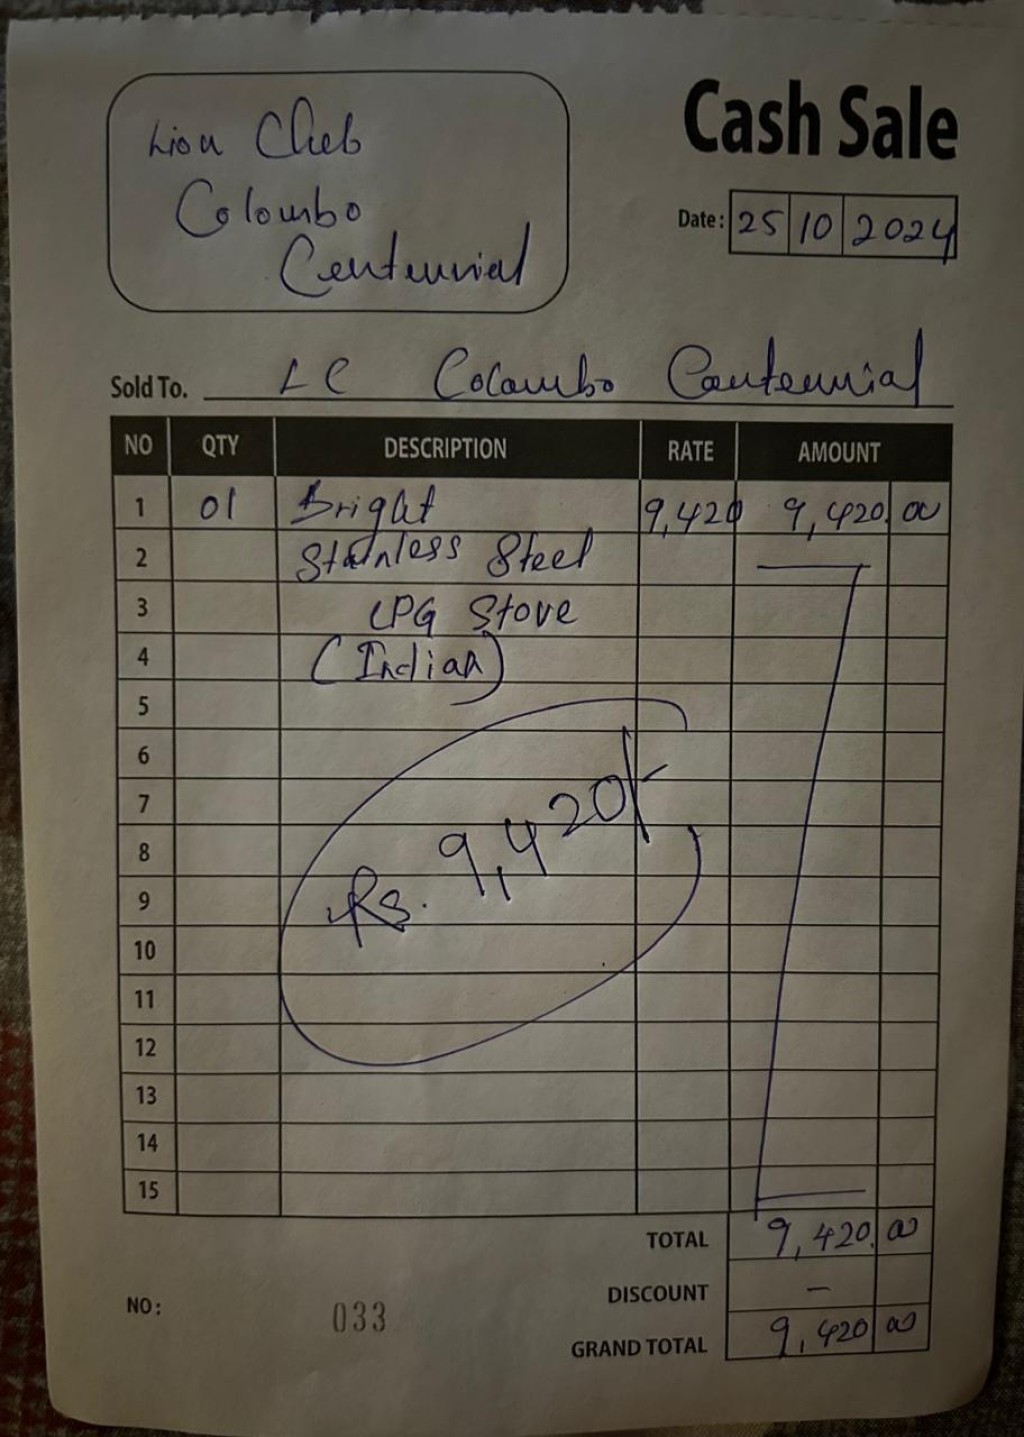 Lion Club
Colombo
Centennial
Cash Sale
Date: 25 10 2024
Sold To. LC Colombo Centennial
NO QTY DESCRIPTION RATE AMOUNT
1 01 Bright 9,420 9,420. 00
2 Stainless Steel
3 LPG Stove
4 (Indian)
5
6
7
8
9
10
11
12
13
14
15
Rs. 9,420/-
TOTAL 9,420. 00
DISCOUNT –
NO: 033
GRAND TOTAL 9,420 00